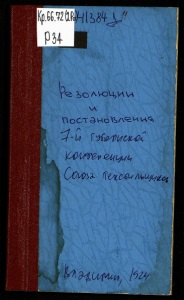 Кр.66.72(2Р)
Р34
Резолюции
и
постановления
7-й губернской
конференции
Союза текстильщиков
Владимир, 1924